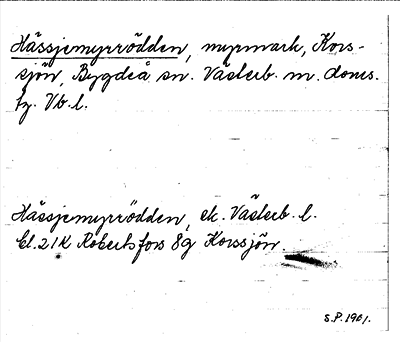 Hässjemyrrödden, myrmark, Kors-
sjön, Bygdeå sn. Västerb. m. doms.
fg. Vb. l.
Hässjemyrrödden, ek. Västerb. l.
bl. 21K Robertsfors 8g Korssjön.
S.P. 1961.